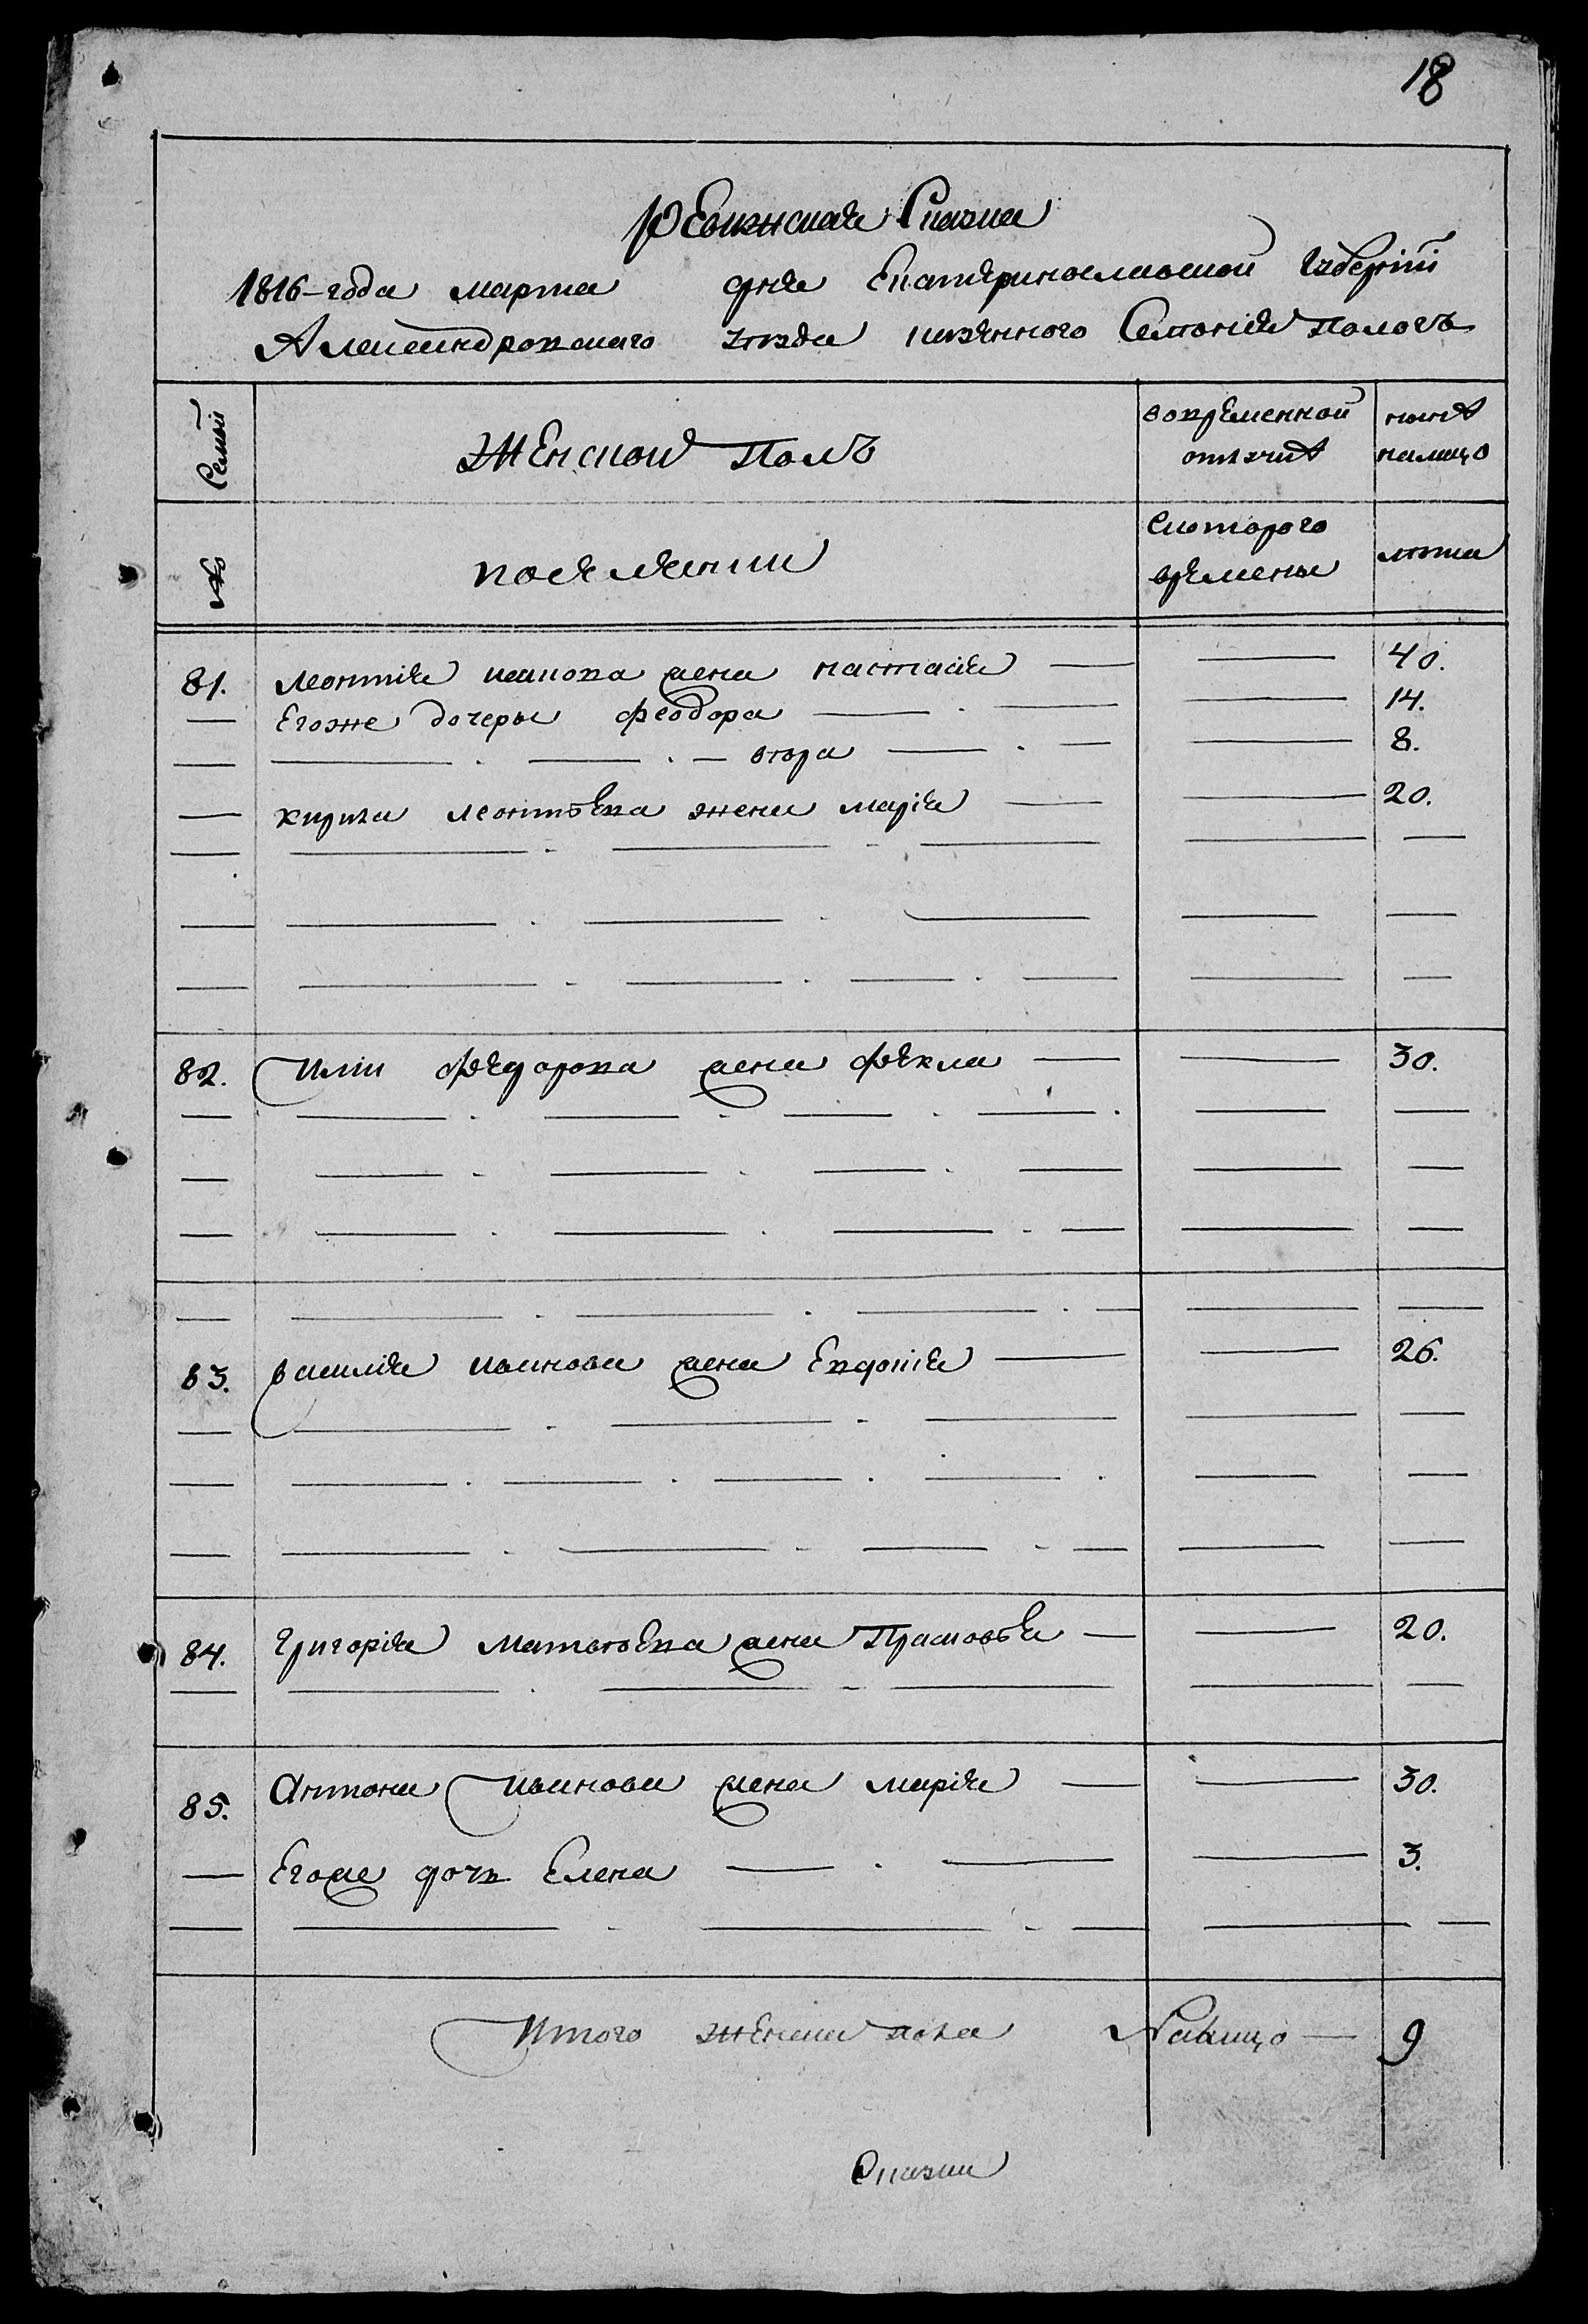 18
Ревизская Сказка
1816-года марта дня Екатеринославской Губернiи
Александровскаго уезда казенного Селенiя Пологъ
Семьи
Женской Полъ
вовременной отлучке
ныне налицо
№
поселянии
Скоторого времены
лета
81. леонтiя иванова жена настасiя 40.
Егоже дочеры феодора 14.
втора 8.
кирила леонтьева жена марiя 20.
82. Илiи федорова жена фекла 30.
83. василiя иванова жена Евдокiя 26.
84. Григорiя Матвеева жена Прасковья 20.
85. Антона Иванова жена марiя 30.
Егоже дочь Елена 3.
Итого женска пола Налицо 9
Сказки